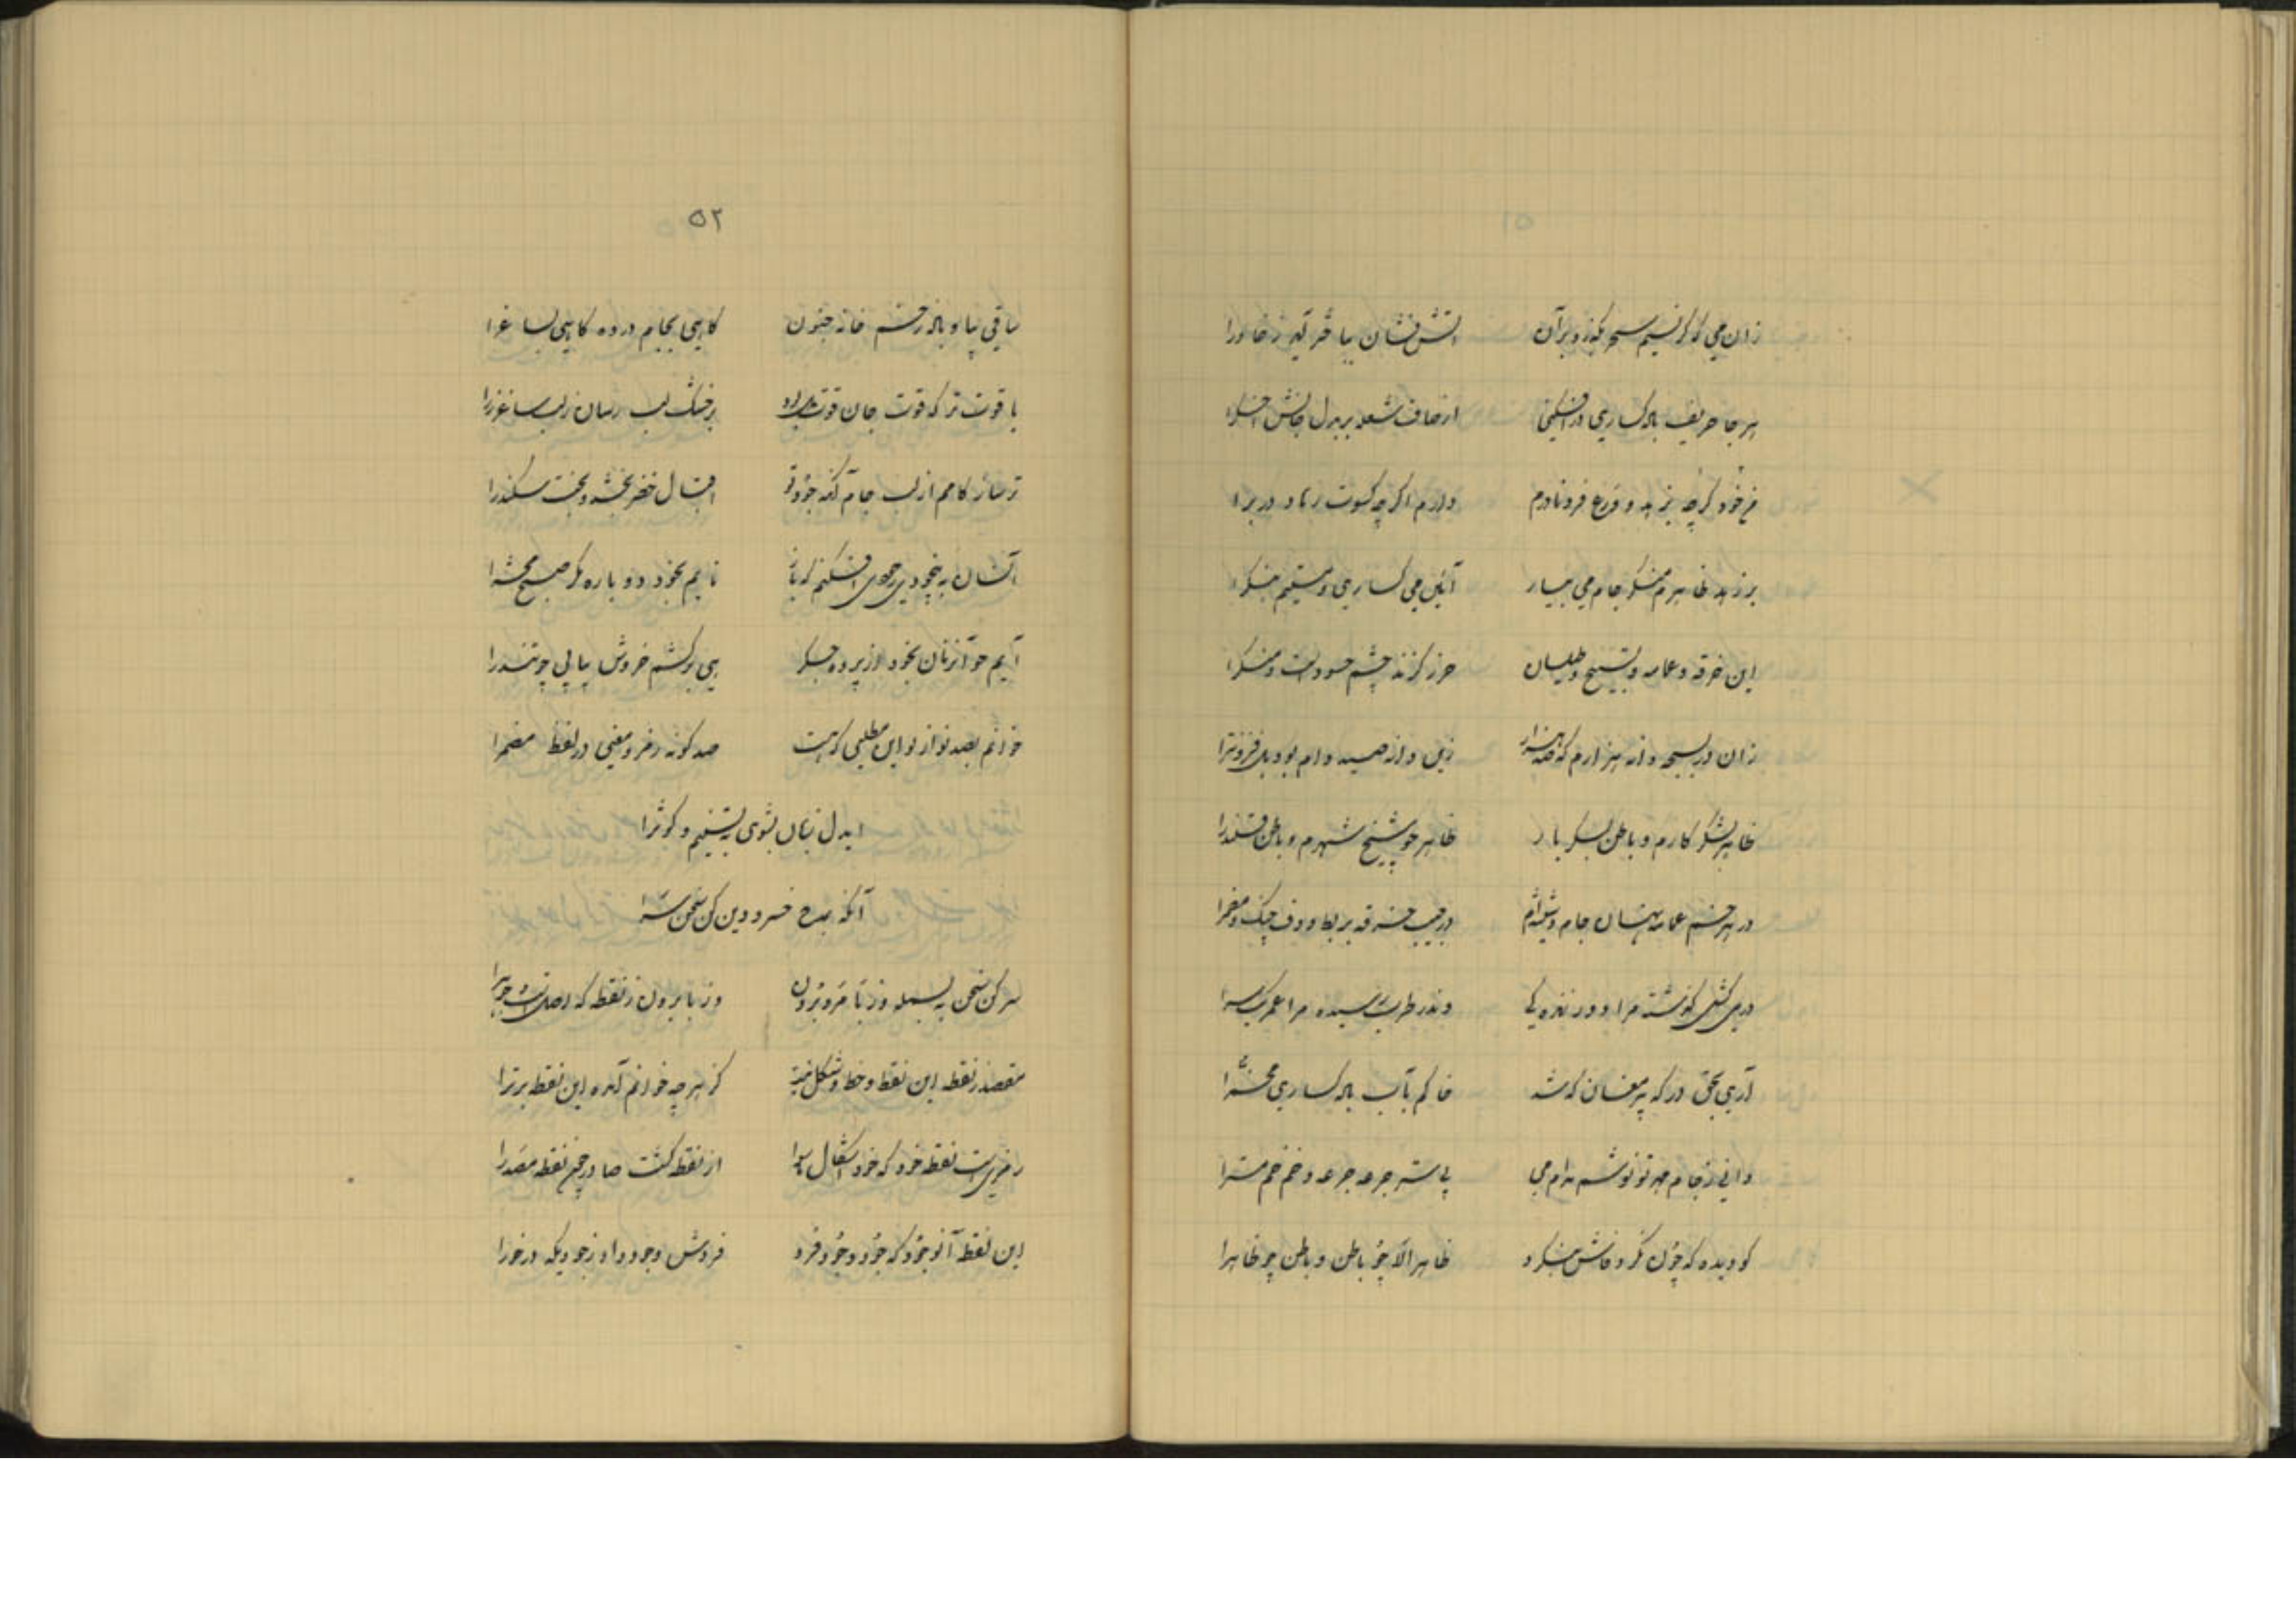 زان می که گر نسیم سحر بگذرد بر آن آتش فشان بباختر آید ز خاورا
هر جا حریف باده گساری در افکنی از صاف شعله بر بدل جانش اخگرا
من خود گرچه بزهد و ورع فرو نادرم دارم اگرچه کسوت زهاد در برا
بر زهد ظاهرم منگر جام می بیار آئین می گساری و مستیم بنگرا
این خرقه و عمامه و تسبیح و طیلسان حرز گزند چشم حسود است و منکرا
زان در سبحه دانه هزارم که صد هزار زین دانه صید دام بود بل فزونترا
ظاهر بشکر کارم و باطن بسکر یار ظاهر چو شیخ شهرم و باطن قلندرا
در هر خم عمامه نهان جام و شیشه‌ام در جیب خرقه بربط و دف چنگ و مضمرا
در می کشی گذشته مرا دور زندگی وندر طرب رسیده مرا عمر یکسرا
آری بحق درگه پیر مغان که شد خاکم بآب باده گساری مخمرا
دانی ز جام مهر تو نوشم مدام می پی سته جرعه جرعه و خم خم مترا
کو دیده که چون نگرد فاش بنگرد ظاهر الا چو باطن و باطن چو ظاهرا
۵۲
ساقی بیا و باده ز خم خانه جنون کاهی بجام در ده کاهی بساغرا
یاقوت تر که قوت جان قوت دل بر خشک لب رسان ز لب ساغر زرا
تر ساز کامم از لب جام آنکه جزو تو اقبال خضر بخشد و بخت سکندرا
آنسان به بیخودی رهم افکنم که باز نایم بخود دوباره مگر صبح محشرا
آیم چو آنزمان بخود از پرده جگر هی برکشم خروش پیاپی چو تندرا
خوانم بصد نوا ز نو این مطلعی که هست صد گونه رمز و معنی در لفظ مضمرا
ایدل زبان بشوی به تسنیم و کوثرا
آنگه بمدح خسرو دین کن سخن سرا
سر کن سخن به بسمله وز با مرو برون وز با برون ز نقطه که اصل است و جوهرا
مقصد ز نقطه این نقط و خط و شکل نیست کز هر چه خوانم آمده این نقطه برترا
رمزی است نقطه خرد که خرد اشکال سوا از نقطه گشت صادر چون نقطه مصدرا
این نقطه آنوجود که جز و وجود فرد فردش وجود داد ز جودیکه در خورا